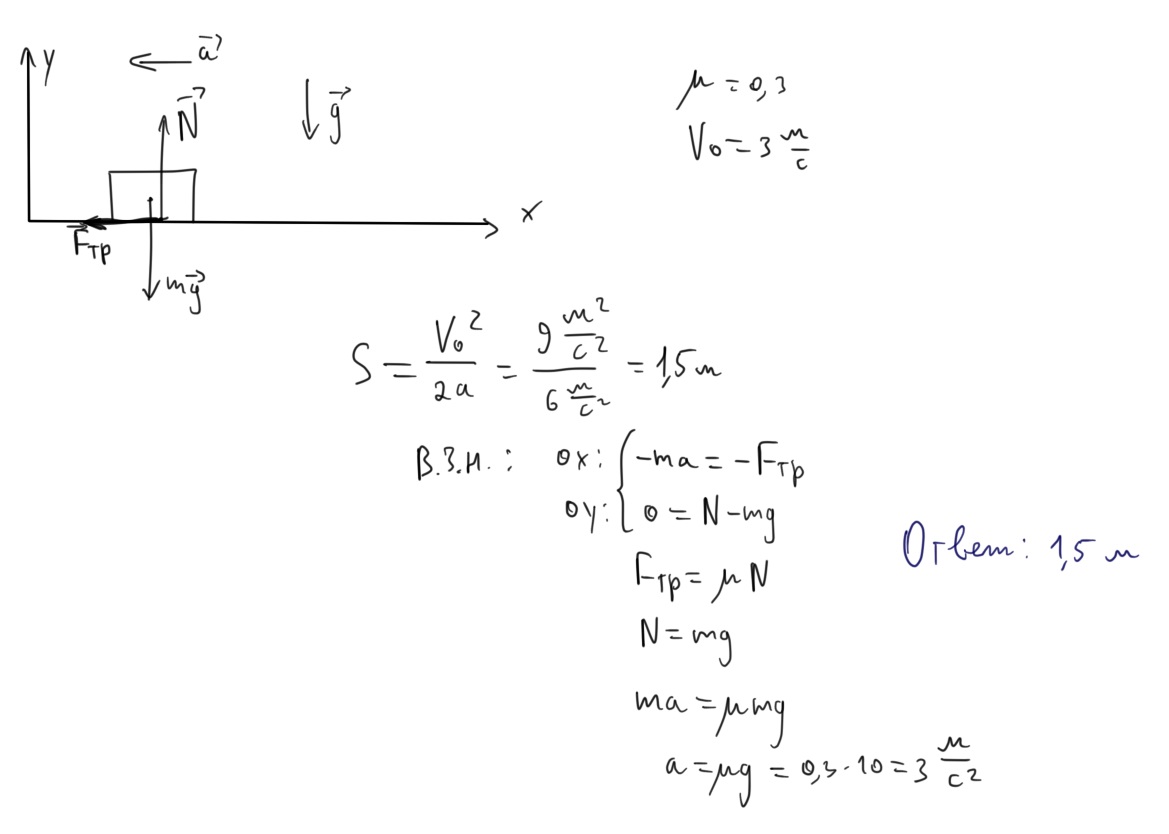 y
a⃗
N⃗
g⃗
μ = 0,3
V₀ = 3 м/с
x
F⃗тр
mg⃗
S = V₀²/2a = 9 м²/с² / 6 м/с² = 1,5 м
В.З.Н.: ox: { -ma = -Fтр
oy: { 0 = N - mg
Fтр = μN
N = mg
ma = μmg
a = μg = 0,3 · 10 = 3 м/с²
Ответ: 1,5 м